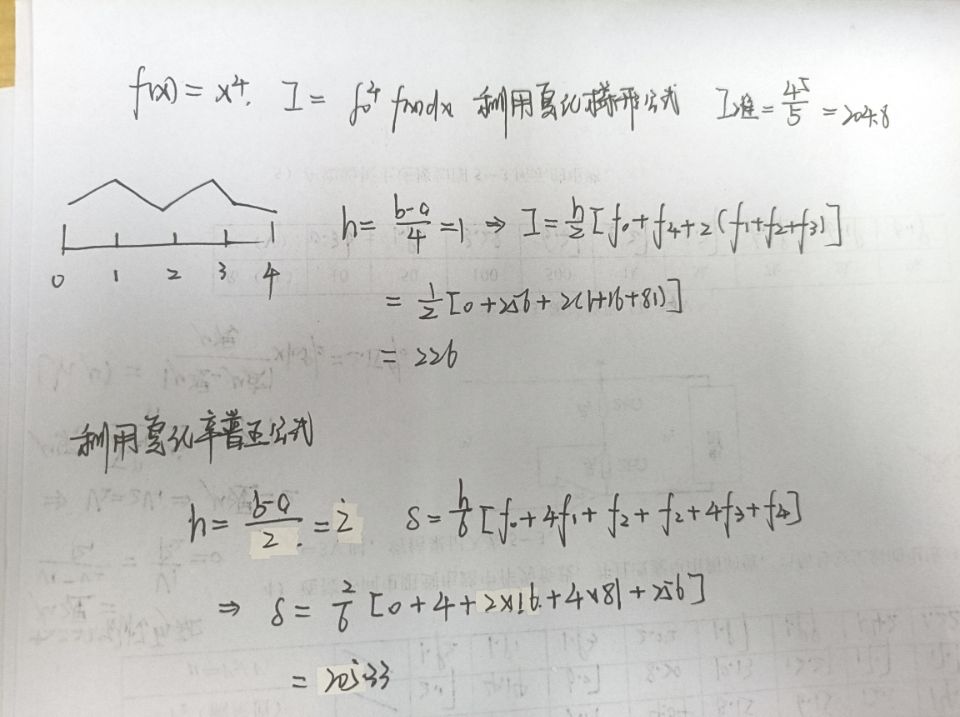 f(x) = x⁴, I = ∫₀⁴ f(x)dx 利用复化梯形公式 I准 = 4⁵/5 = 204.8
h = (b-a)/4 = 1 ⇒ I = h/2 [f₀ + f₄ + 2(f₁+f₂+f₃)]
0 1 2 3 4
= 1/2 [0+256+2(1+16+81)]
= 226
利用复化辛普生公式
h = (b-a)/2 = 2 S = h/6 [f₀ + 4f₁ + f₂ + f₂ + 4f₃ + f₄]
⇒ S = 2/6 [0 + 4 + 2×16 + 4×81 + 256]
= 205.33